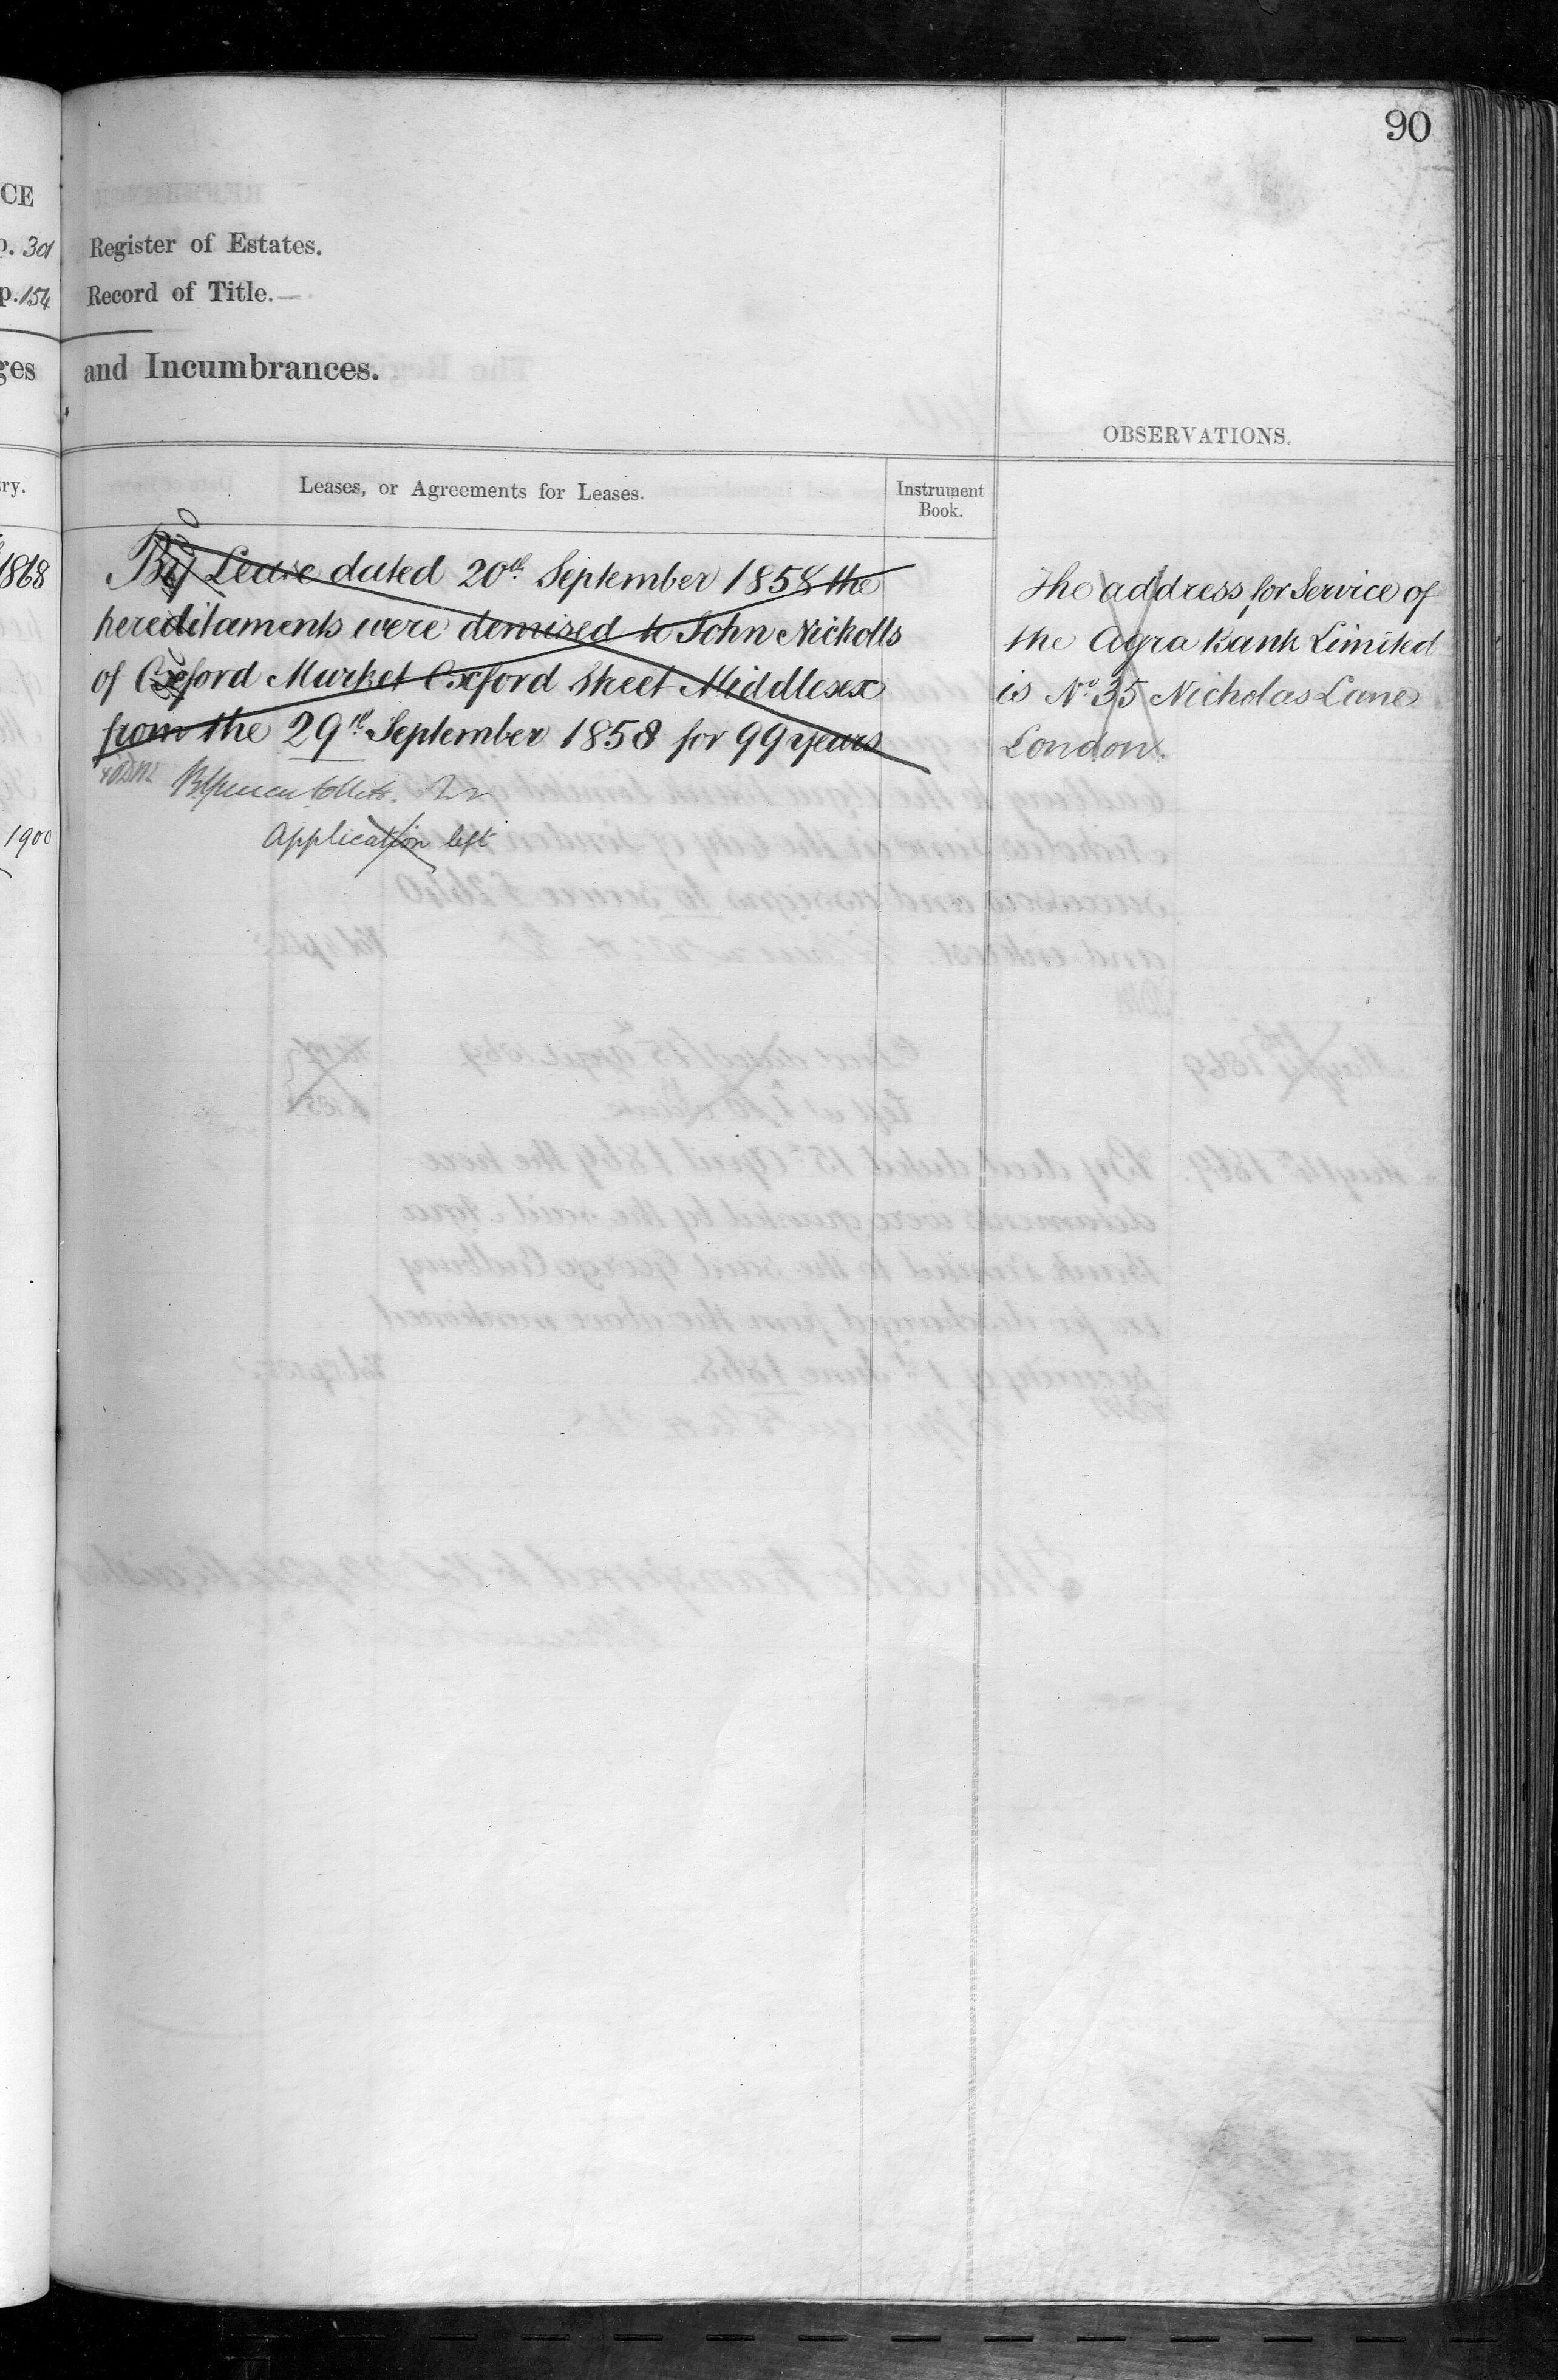 90
CE
p. 301 Register of Estates.
p. 154 Record of Title.
ges and Incumbrances.
OBSERVATIONS.
ry. Leases, or Agreements for Leases.
Instrument
Book.
1868
By Lease dated 20th September 1858 the
hereditaments were demised to John Nicholls
of Oxford Market Oxford Street Middlesex
from the 29th September 1858 for 99 years
Application left
1900
The address for Service of
the Agra Bank Limited
is No. 35 Nicholas Lane
London.